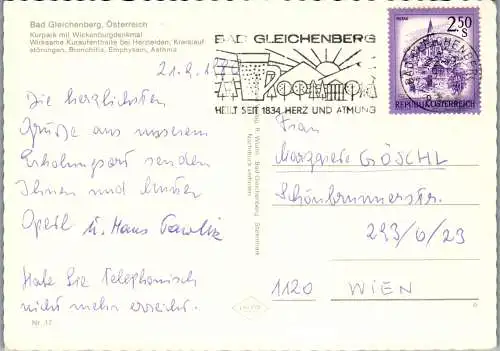 Bad Gleichenberg, Österreich
Kurpark mit Wickenburgdenkmal
Wirksame Kuraufenthalte bei Herzleiden, Kreislauf-
störungen, Bronchitis, Emphysem, Asthma
21.9.
Die herzlichsten
Grüße aus unserem
Erholungsort senden
Ihnen und
u. Hans
Habe Sie telephonisch
nicht mehr erreicht.
Nr. 12
BAD GLEICHENBERG
HEILT SEIT 1834 HERZ UND ATMUNG
BAD GLEICHENBERG
2.50
S
REPUBLIK ÖSTERREICH
Bad Gleichenberg, Steiermark
Nachdruck verboten
Frau
GÖSCHL
Schönbrunnerstr.
293/6/23
1120 WIEN